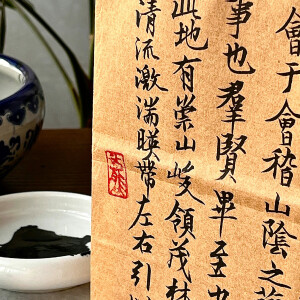 會于會稽山陰之
事也羣賢畢至少
此地有崇山峻領茂林
清流激湍暎帶左右引